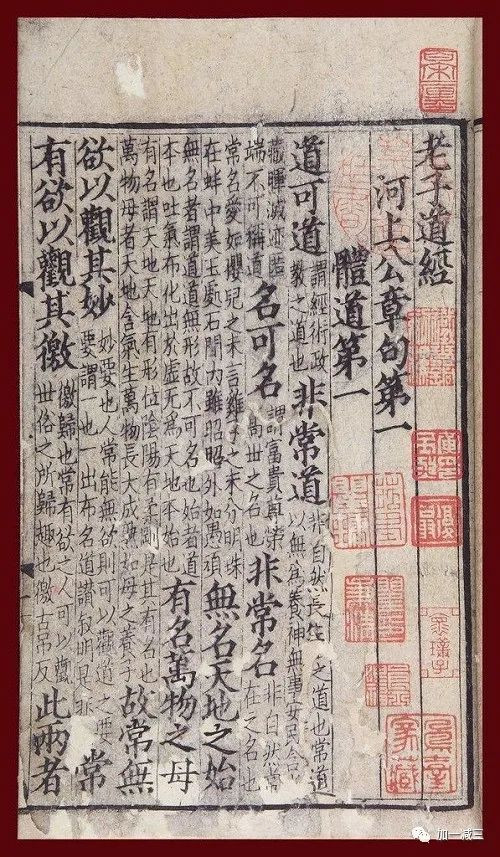 老子道經
河上公章句第一
體道第一
道可道 謂經術政教之道也 非常道 非自然長生之道也常道以無爲養神無事安民含
藏暉滅迹匿端不可稱道 名可名 謂富貴尊榮高世之名也 非常名 非自然常在之名也
常名愛如嬰兒之未言雞子之未分明珠在蚌中美玉處石間内雖昭昭外如愚頑 無名天地之始
無名者謂道道無形故不可名也始者道本也吐氣布化出於虛無爲天地本始也 有名萬物之母
有名謂天地天地有形位陰陽有柔剛是其有名也萬物母者天地含氣生萬物長大成熟如母之養子 故常無
欲以觀其妙 妙要也人常能無欲則可以觀道之要要謂一也一出布名道讚叙明是非 常
有欲以觀其徼 徼歸也常有欲之人可以觀世俗之所歸趣也徼古吊反 此兩者
加一减三